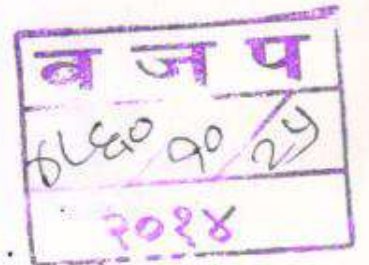 ब ज प
४८६० १० / २५
२०१४